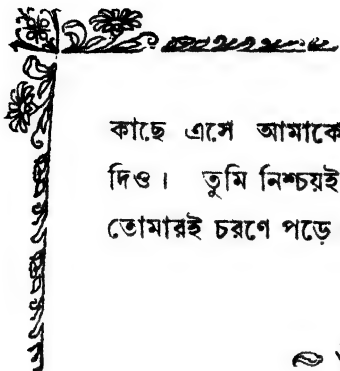 কাছে এসে আমাকে
দিও। তুমি নিশ্চয়ই
তোমারই চরণে পড়ে